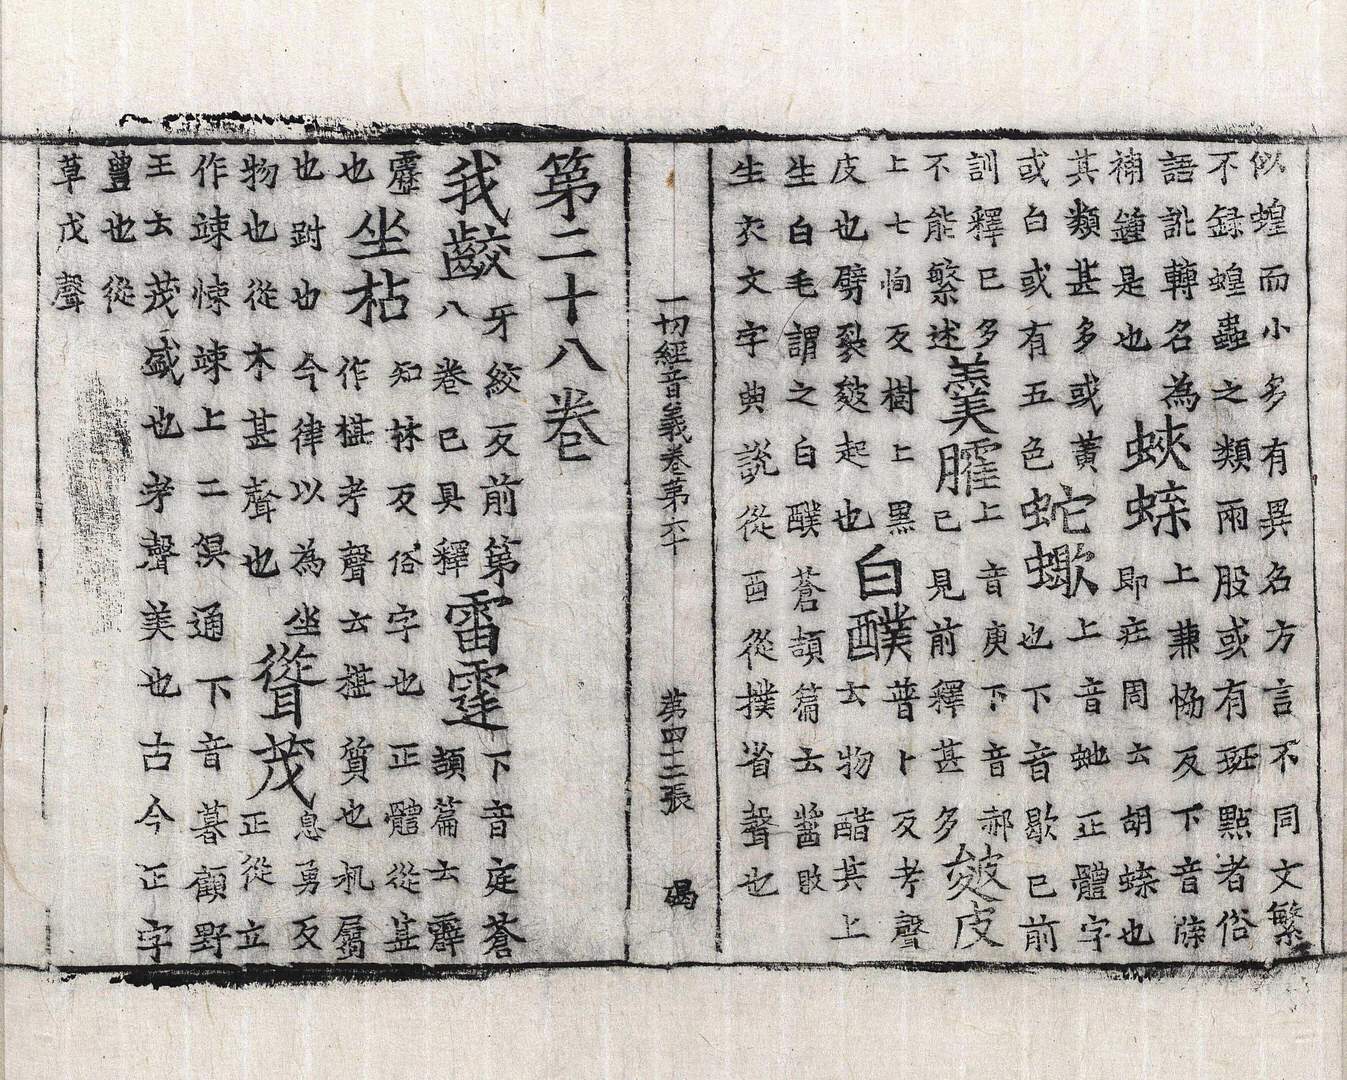 似蝗而小多有異名方言不同文繁
不録蝗蟲之類兩股或有斑點者俗
語訛轉名為
補鍾是也
蛺蝶
上兼恊反下音牒
即疰周云胡蝶也
其類甚多或黃
或白或有五色
蛇蠍
上音虵正體字
也下音歇已前
訓釋已多
不能繁述
羹臛
上音庚下音郝
已見前釋甚多
皴皮
上七恂反樹上黑
皮也劈裂皴起也
白醭
普卜反考聲
云物醋其上
生白毛謂之白醭蒼頡篇云醬敗
生衣文字典說從酉從撲省聲也
一切經音義卷第六十
第四十二張
碣
第二十八卷
我齩
牙絞反前第
八卷已具釋
雷霆
下音庭蒼
頡篇云霹
靂
也
坐枮
知林反俗字也正體從甚
作椹考聲云椹質也机屬
也跗也今律以為坐
物也從木甚聲也
聳茂
息勇反
正從立
作竦悚竦上二淏通下音暮顧野
王云茂盛也考聲美也古今正字
豐也從
草戊聲